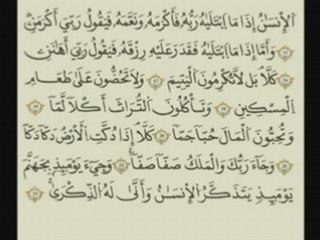 ٱلْإِنسَٰنُ إِذَا مَا ٱبْتَلَىٰهُ رَبُّهُۥ فَأَكْرَمَهُۥ وَنَعَّمَهُۥ فَيَقُولُ رَبِّىٓ أَكْرَمَنِ
﴿١٥﴾ وَأَمَّآ إِذَا مَا ٱبْتَلَىٰهُ فَقَدَرَ عَلَيْهِ رِزْقَهُۥ فَيَقُولُ رَبِّىٓ أَهَٰنَنِ
﴿١٦﴾ كَلَّا بَل لَّا تُكْرِمُونَ ٱلْيَتِيمَ ﴿١٧﴾ وَلَا تَحَٰٓضُّونَ عَلَىٰ طَعَامِ
ٱلْمِسْكِينِ ﴿١٨﴾ وَتَأْكُلُونَ ٱلتُّرَاثَ أَكْلًا لَّمًّا ﴿١٩﴾
وَتُحِبُّونَ ٱلْمَالَ حُبًّا جَمًّا ﴿٢٠﴾ كَلَّآ إِذَا دُكَّتِ ٱلْأَرْضُ دَكًّا دَكًّا
﴿٢١﴾ وَجَآءَ رَبُّكَ وَٱلْمَلَكُ صَفًّا صَفًّا ﴿٢٢﴾ وَجِا۟ىٓءَ يَوْمَئِذٍۭ بِجَهَنَّمَ
يَوْمَئِذٍ يَتَذَكَّرُ ٱلْإِنسَٰنُ وَأَنَّىٰ لَهُ ٱلذِّكْرَىٰ ﴿٢٣﴾